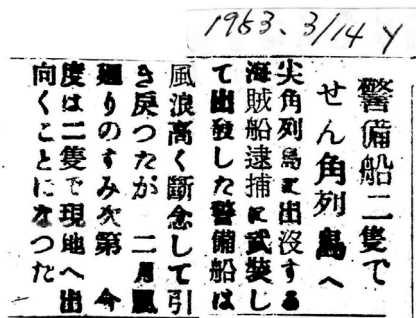 1953. 3/14 Y
警備船二隻で
せん角列島へ
尖角列島に出没する
海賊船逮捕に武装し
て出発した警備船は
風浪高く断念して引
き戻つたが 二月風
廻りのすみ次第 今
度は二隻で現地へ出
向くことになつた